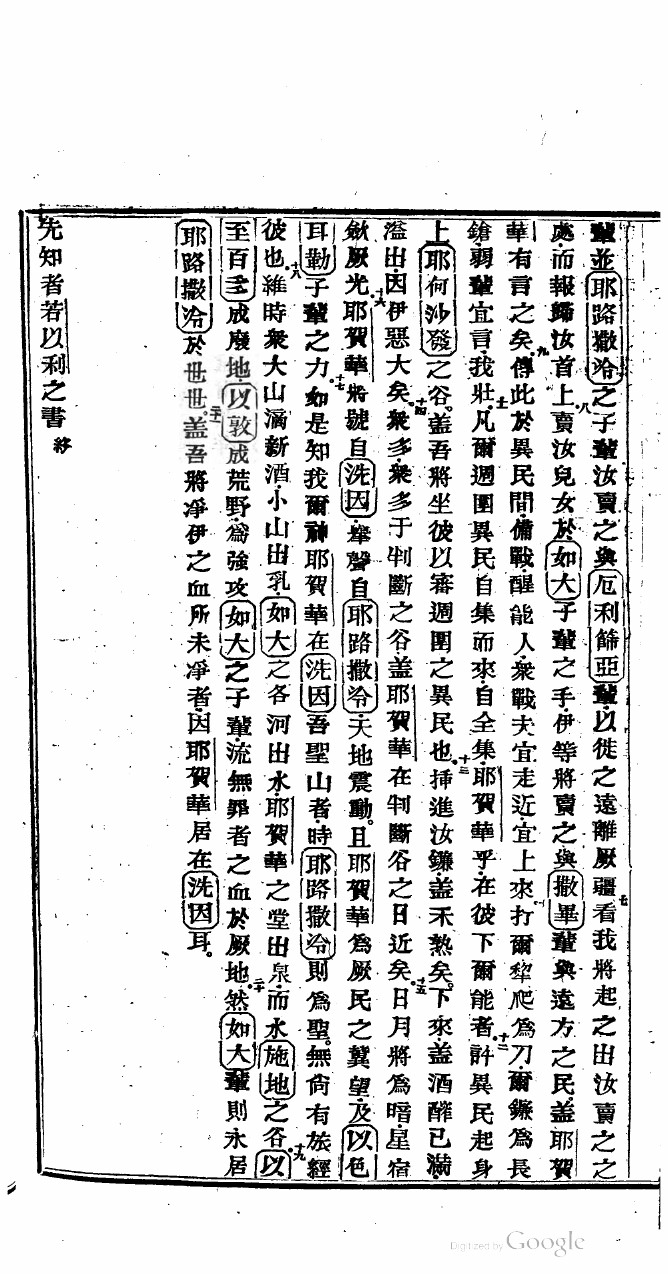 輩並耶路撒冷之子輩汝賣之與厄利篩亞輩以徙之遠離厥疆七看我將起之出汝賣之之
處而報歸汝首上八賣汝兒女於如大子輩之手伊等將賣之與撒畢輩與遠方之民蓋耶賀
華有言之矣九傳此於異民間備戰醒能人衆戰夫宜走近宜上來十打爾犂爬為刀爾鐮為長
鎗弱輩宜言我壯十一凡爾週圍異民自集而來自全集耶賀華乎在彼下爾能者十二許異民起身
上耶何沙發之谷蓋吾將坐彼以審週圍之異民也十三揷進汝鐮蓋禾熟矣下來蓋酒醡已滿
溢出因伊惡大矣十四衆多衆多于判斷之谷蓋耶賀華在判斷谷之日近矣十五日月將為暗星宿
歛厥光十六耶賀華將號自洗因舉聲自耶路撒冷天地震動且耶賀華為厥民之冀望及以色
耳勒子輩之力十七如是知我爾神耶賀華在洗因吾聖山者時耶路撒冷則為聖無尙有旅經
彼也十八維時衆大山滴新酒小山出乳如大之各河出水耶賀華之堂出泉而水施地之谷十九以
至百多成廢地以敦成荒野為強攻如大之子輩流無罪者之血於厥地二十然如大輩則永居
耶路撒冷於世世二十一蓋吾將凈伊之血所未凈者因耶賀華居在洗因耳
先知者若以利之書 終
Digitized by Google